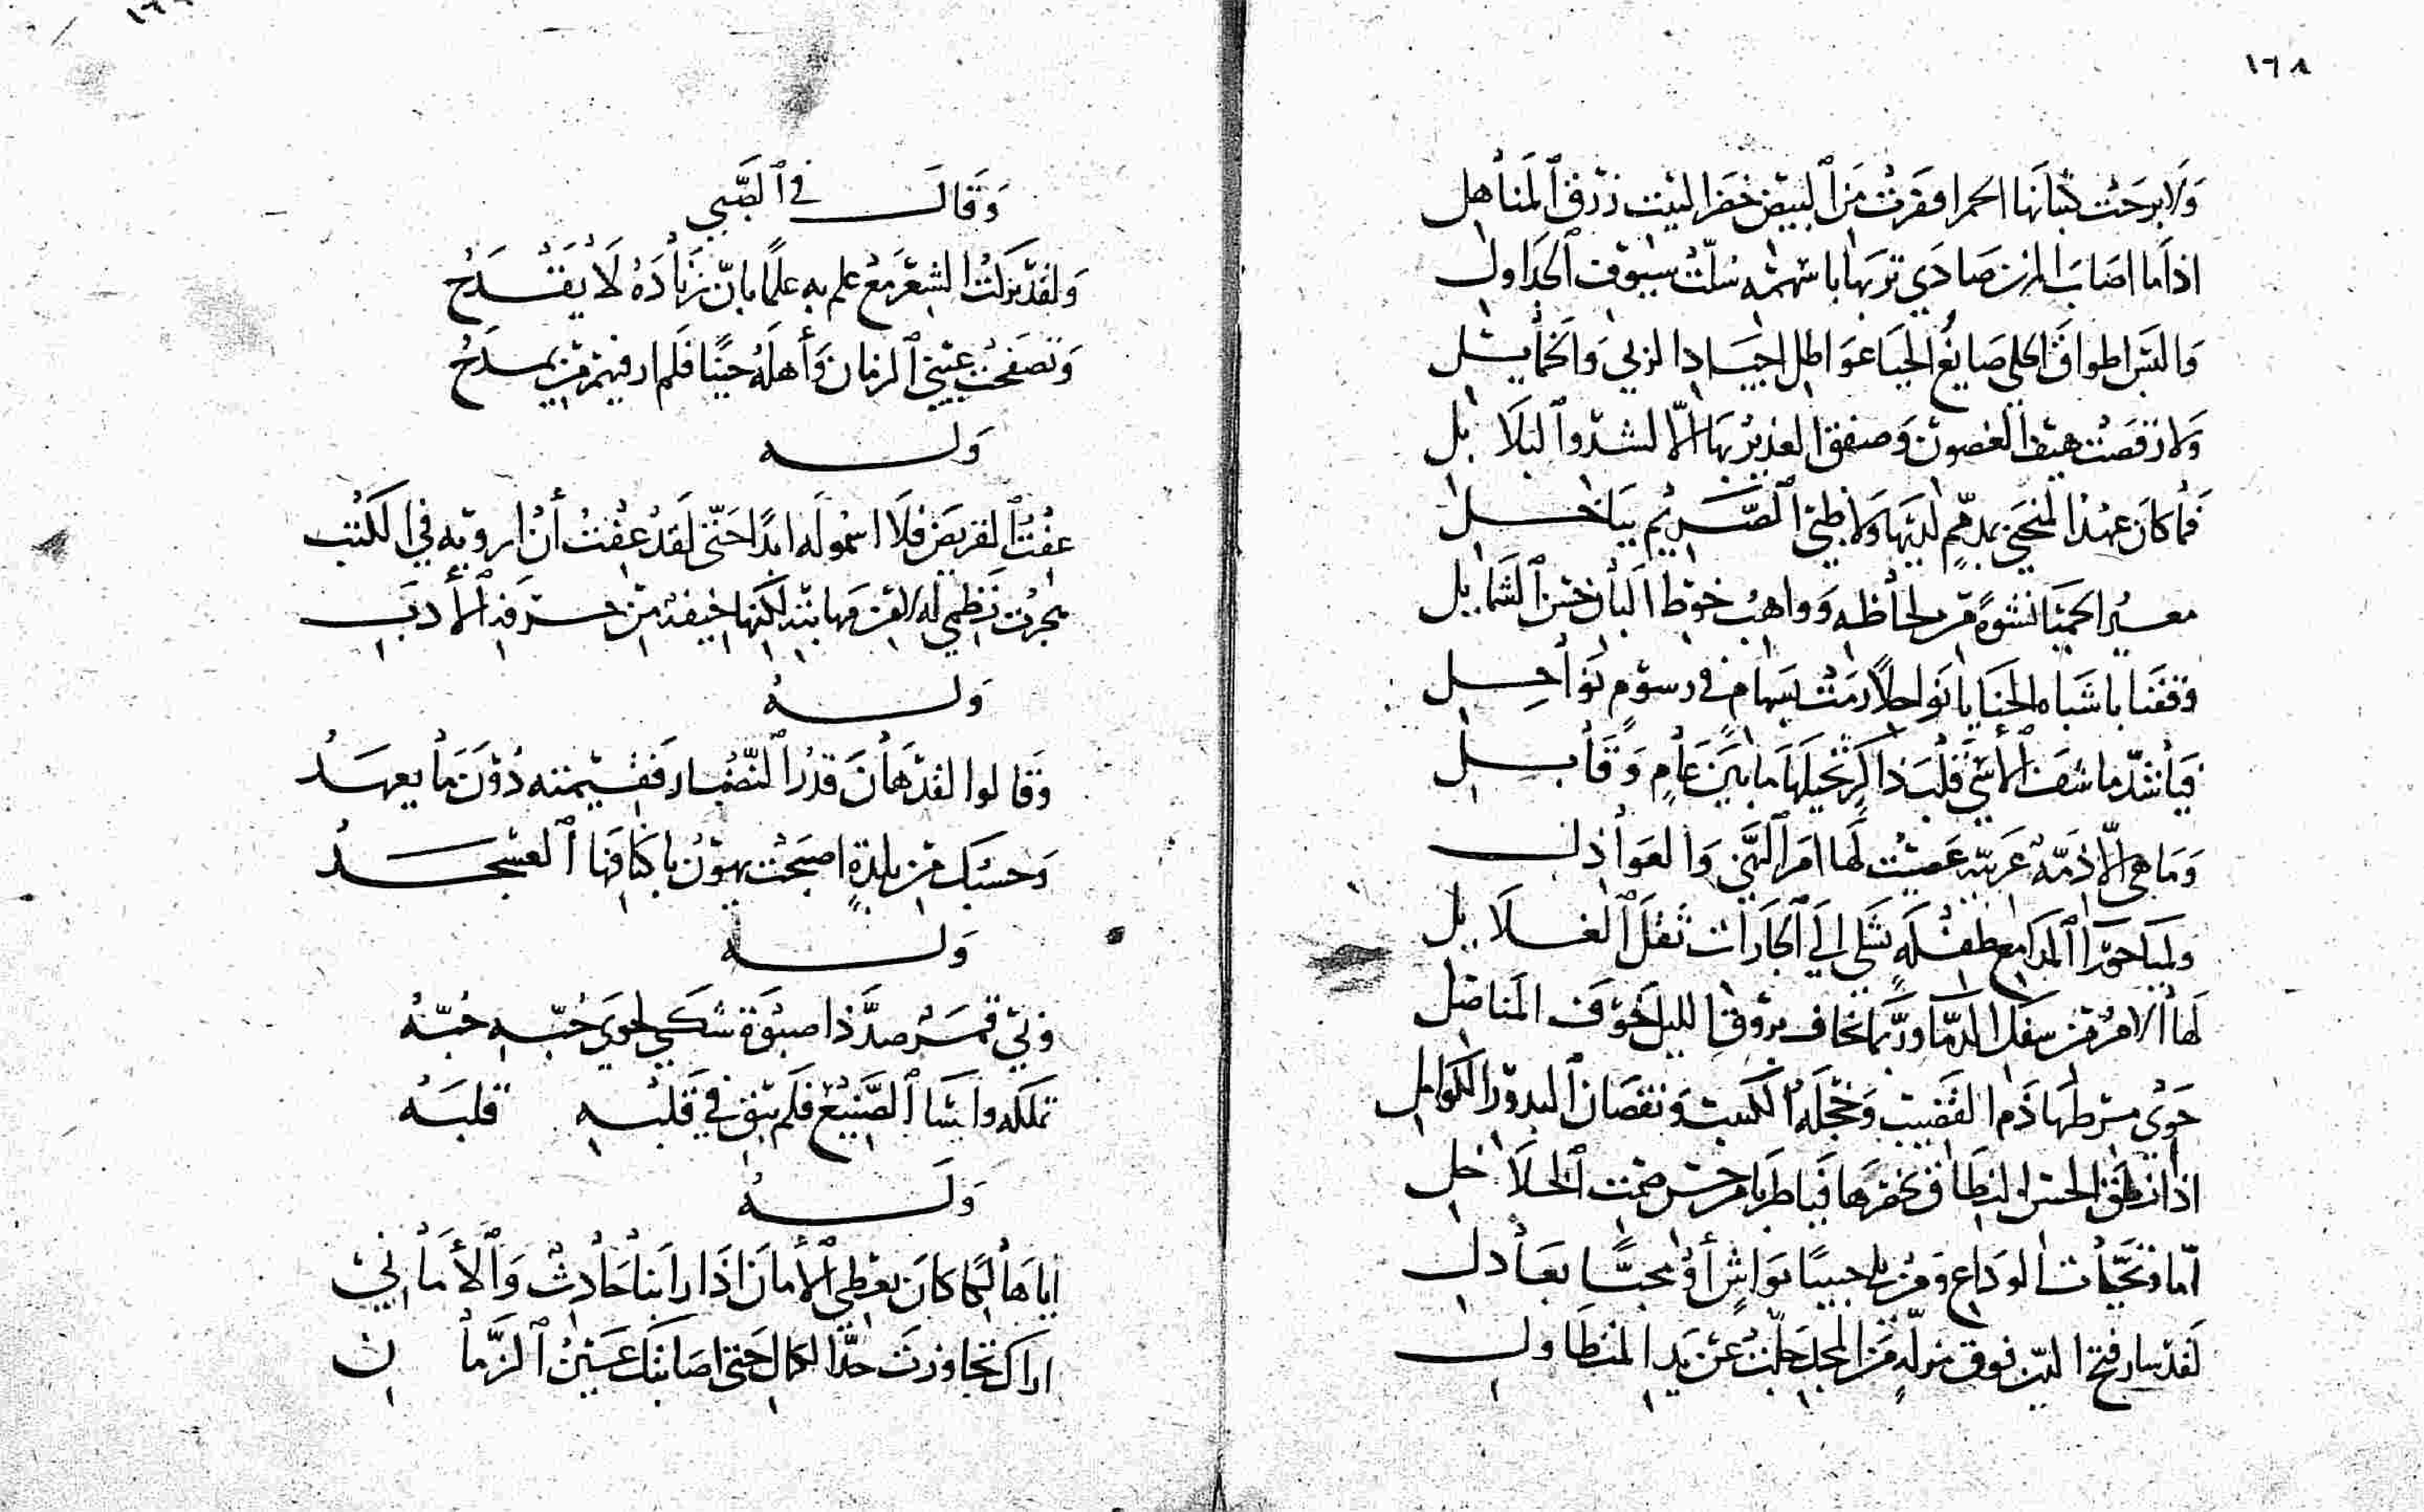 ١٦٨
وَلَا بَرِحَتْ كثبانها الحمر افقرت مَن ٱلبيض خضر الليت زرق ٱلمَناهل
اذا مَا اصَابَ المزن صَادَي تربها باسهمه سُلّتْ سيوف ٱلجَداول
وَالبس اطواق الحلي صَايغُ الحيَا عوَاطل اجيَاد الربي وَالخمايل
وَلا رَقصَتْ هيف الغصون وَصفق الغدير بهَا الّا لشدو ٱلبَلَابل
فما كانَ عهد المنحني بمذممٍ لديهَا وَلَا ظبي ٱلصَّريم بباخل
معير الحميّا نشوةً من لحاظه وَواهب خوط البان خسن ٱلشمايل
وقفنا باشباه الحَنايَا نواحلاً رمَتْ بسهامٍ في رسومٍ نوَاحِل
فيَا شدّ ما شف ٱلأسَي قلبَ ذاكرٍ نحيلهَا مابَين عَامٍ وَقَابل
وَمَا هي الّا ذمّة عَربيّه عَصيْت لهَا امر ٱلنهي وَالعوَاذل
وَلميَا حورَا ٱلمدَامع طفلَه تشكي الي ٱلجَارات ثقل ٱلغلَايل
لهَا الامر من سفك الدمَا وربّما تخاف بروق الليل خوفَ المناصل
حَوَي مرطهَا ذَم القضيب وَخجلَة الكثيب وَنقصَان ٱلبدور الكوامل
اذا نطق الحسن النطَاق بخصرهَا فيَا طربا من خرس صمت ٱلخلَاخل
امَا وَتحيّات الوَداع وَمن بلي حبيبًا بوَاشٍ أو محبًّا بعَاذل
لَقد سار فتح الدين فوق منزلةٍ مَن المجد جلّت عَن يد المتطَاول
وَقَالَ في ٱلصّبي
وَلقد تركتُ الشعر مَعْ علمٍ به علمًا بانّ زنَادَهُ لَا يقْدَحُ
وَتصفحت عيني ٱلزمان وَأهلهُ حينًا فلم ار فيهم من يمدَحُ
وَلـه
عِفْتُ ٱلقريض فلَا اسمو لَه ابدًا حَتّي لَقد عِفْتُ أن ارويه في الكتب
هجرت نَظمي له لا من مهانته لكنها خيفة من حرفة ٱلأدَب
وَلـهُ
وَقالوا لقد هَانَ قدرُ ٱلنّضَار فقيمته دُوْنَ مَا يعهدُ
وَحسبك من بلدةٍ اصبَحْت يهون باكنافهَا ٱلعسجدُ
وَلـه
وَبي قمر صدَّ ذا صبوَة شكي لجوَي حُبّه حُبّهُ
تملكه وَاسَا ٱلصَّنيع فلَم يبق في قَلبه قلبَهُ
وَلَـهُ
أيَا هَالكا كانَ يعْطي ٱلأمان اذَا رابنا حَادث وَٱلأمَاني
ارَاكَ تجَاوزتَ حدّ الكمال حتي اصَابتك عَينُ ٱلزَّمان